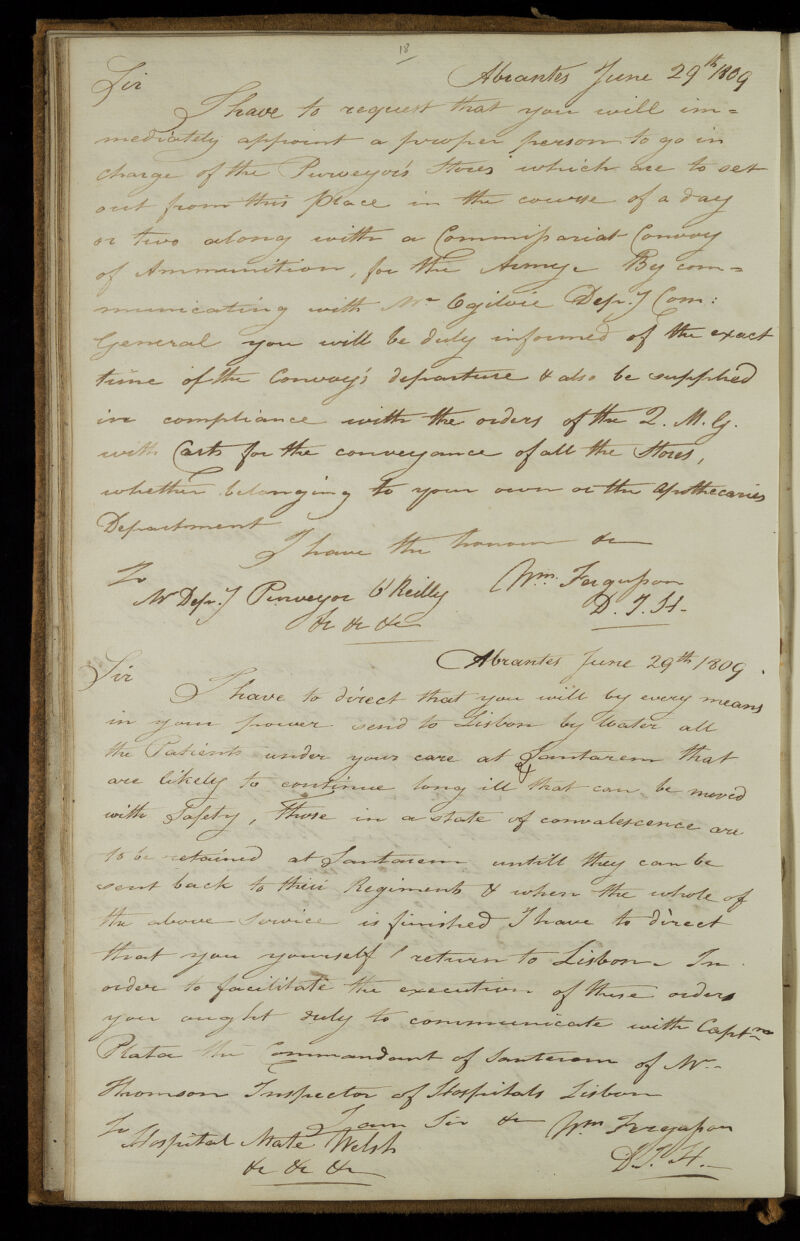 18
Abrantes June 29th 1809
Sir
I have to request that you will im=
mediately appoint a proper person to go in
charge of the Purveyor's Stores which are to set
out from this place in the course of a day
or two along with a Commissariat Convoy
of Ammunition, for the Army. By com=
municating with Mr Ogilvie Depy Com:
General you will be duly informed of the exact
time of the Convoy's departure & also be supplied
in compliance with the orders of the Q. M. G.
with Carts for the conveyance of all the Stores,
whether belonging to your own or the Apothecaries
Department
I have the honour &c
To
Mr Depy Purveyor O'Reilly
&c &c &c
Wm. Fergusson
D. I. H.
Abrantes June 29th 1809.
Sir
I have to direct that you will by every means
in your power send to Lisbon by Water all
the Patients under your care at Santarem that
are likely to continue long ill & that can be moved
with Safety, those in a state of convalescence are
to be retained at Santarem untill they can be
sent back to their Regiments & when the whole of
the above Service is finished I have to direct
that you yourself return to Lisbon. In
order to facilitate the execution of these orders
you ought duly to communicate with Captn
Plata the Commandant of Santarem of Mr.
Thomson Inspector of Hospitals Lisbon
I am Sir &c
To
Hospital Mate Welsh
&c &c &c
Wm Fergusson
D. I. H.